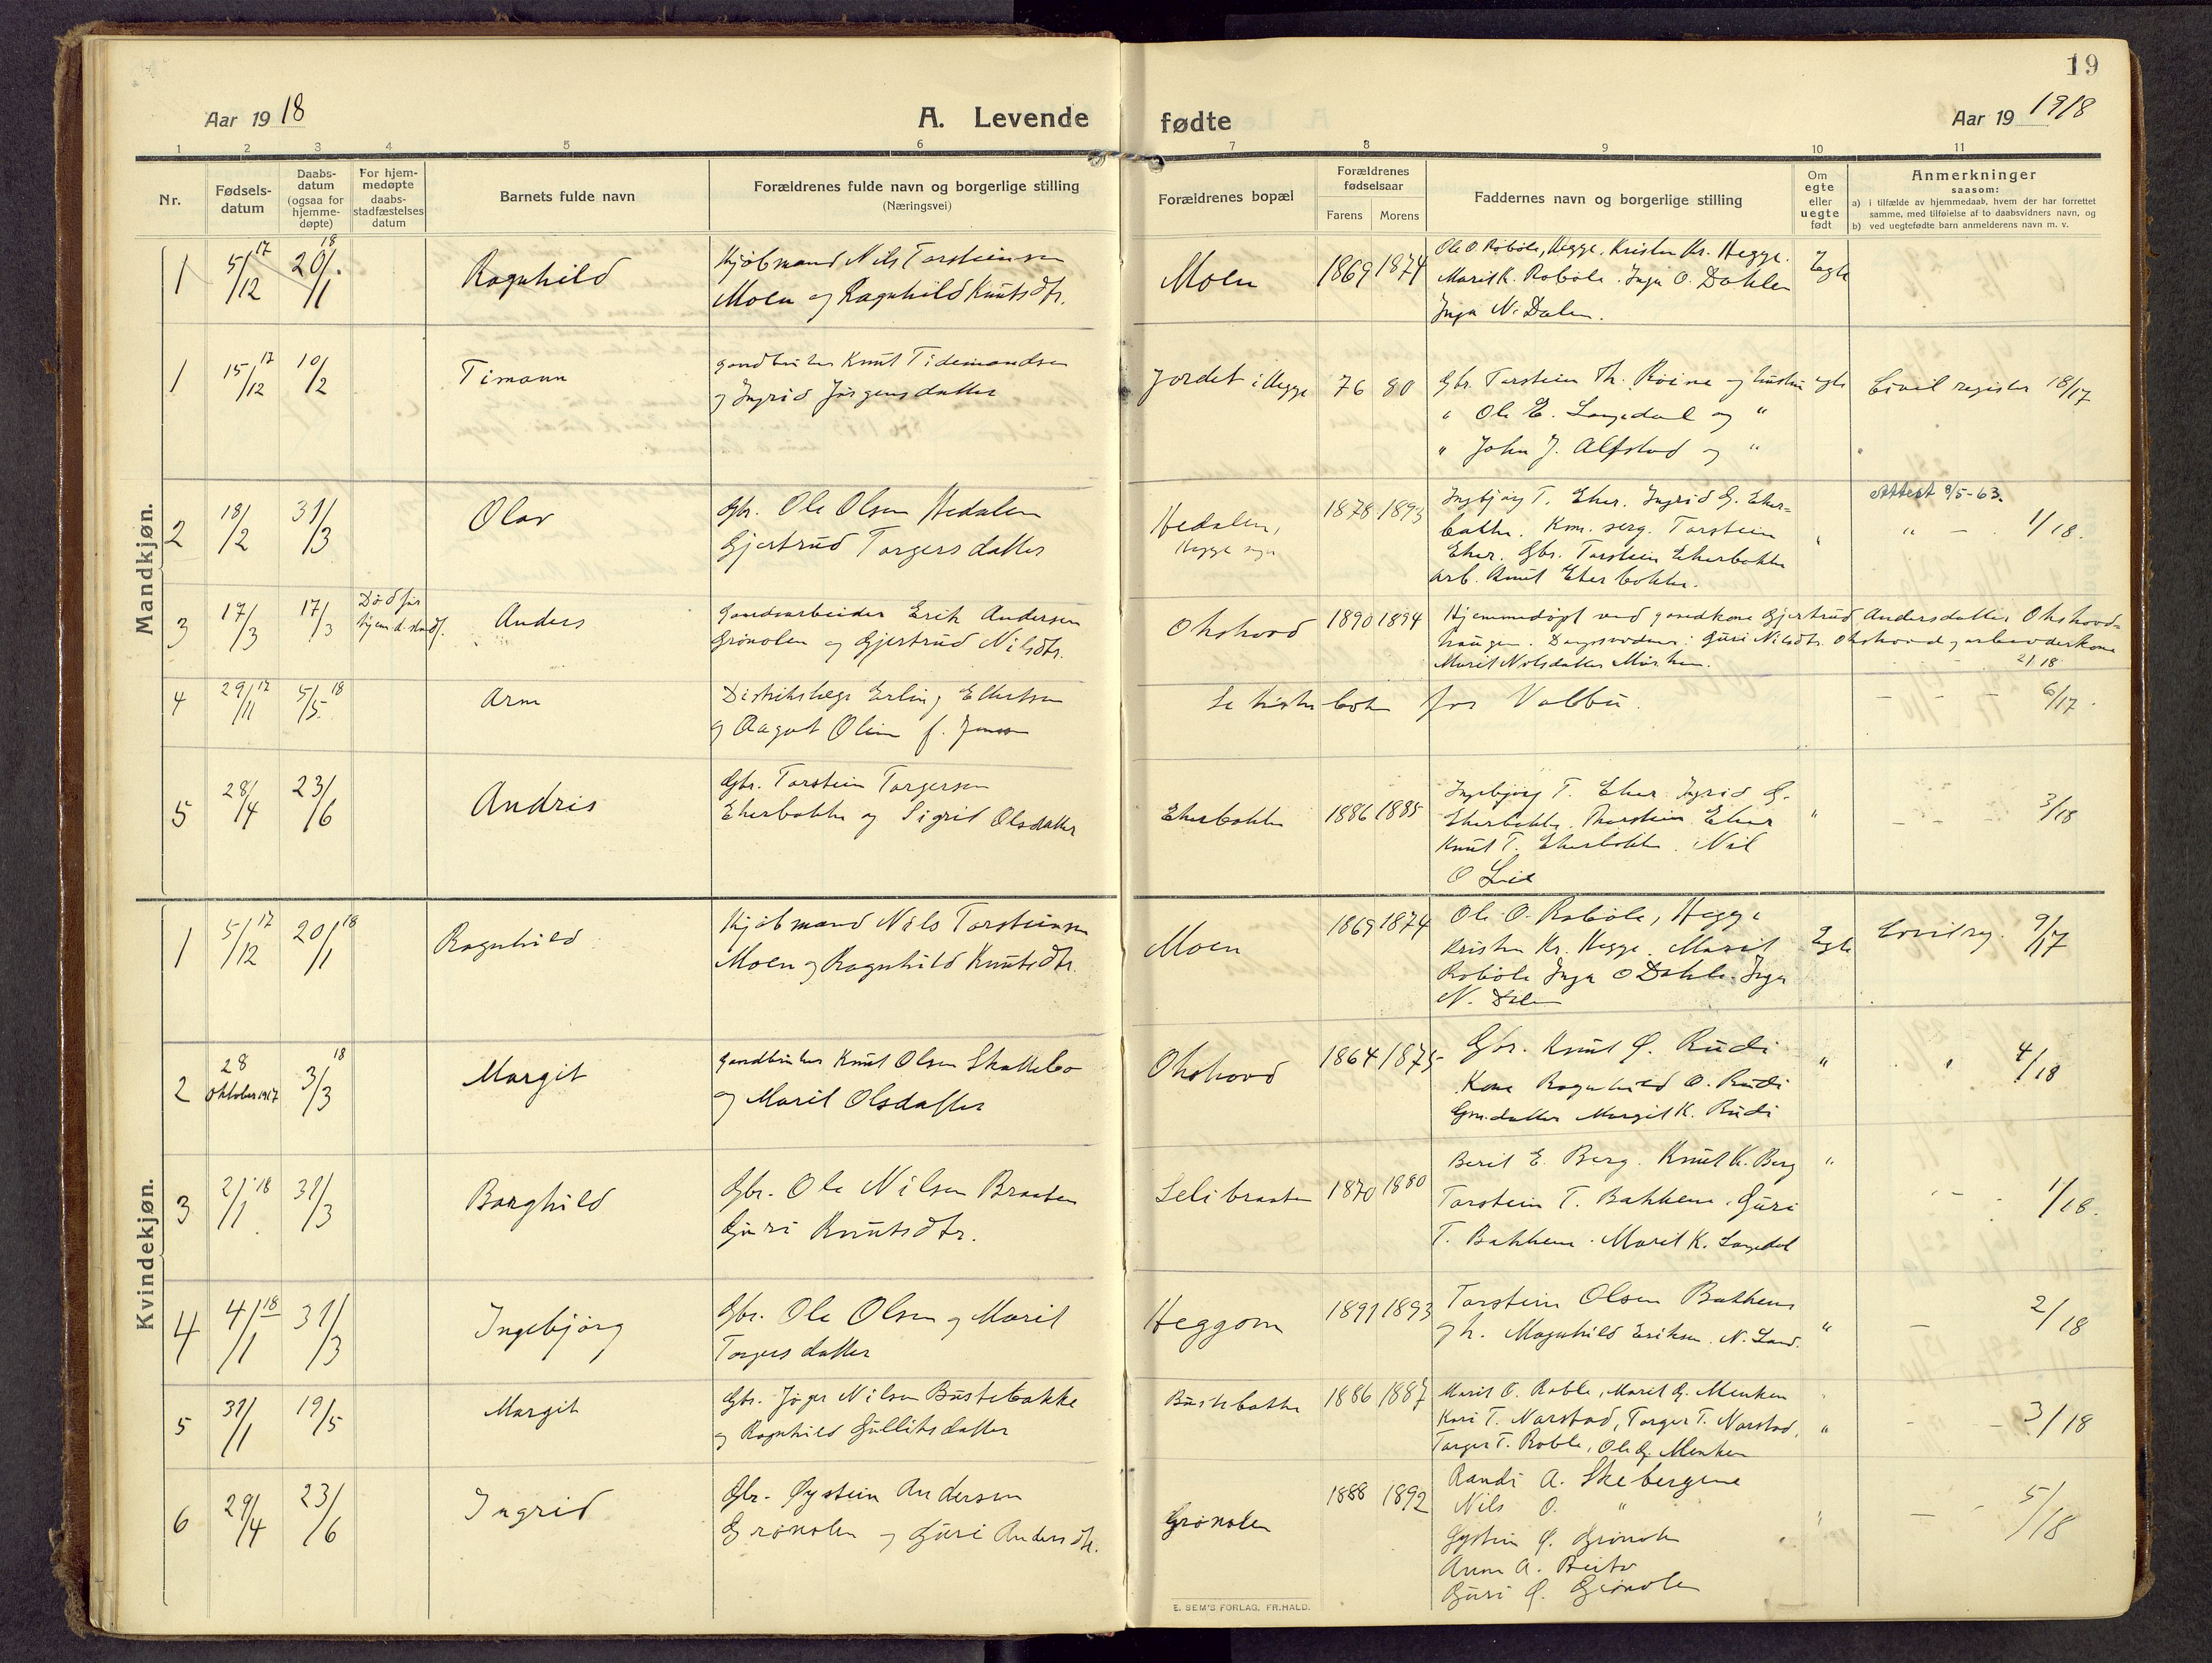 19
Aar 19 18
A. Levende
fødte
Aar 19 1918
1 2 3 4 5 6 7 8 9 10 11
Nr.
Fødsels-
datum
Daabs-
datum
(ogsaa for
hjemme-
døpte)
For hjem-
medøpte
daabs-
stadfæstelses
datum
Barnets fulde navn
Forældrenes fulde navn og borgerlige stilling
(Næringsvei)
Forældrenes bopæl
Forældrenes
fødselsaar
Farens Morens
Faddernes navn og borgerlige stilling
Om
egte
eller
uegte
født
Anmerkninger
saasom:
a) i tilfælde av hjemmedaab, hvem der har forrettet
samme, med tilføielse af to daabsvidners navn, og
b) ved uegtefødte barn anmelderens navn m. v.
Mandkjøn.
1 5/12 17 20/1 18 Ragnhild
Kjøbmand Nils Torsteinsen
Moen og Ragnhild Knutsdtr.
Moen 1869 1874
Ole O Robøle, Hegge, Kristen Kr. Hegge.
Marit K. Robøle. Inga O. Dahlen
Inga N. Dalen.
Egte
1 15/12 17 10/2 Timann
gaardbruker Knut Tidemandsen
og Ingrid Jørgensdatter
Jordet i Hegge 76 80
Gbr. Torstein Th. Røine og hustru egte
" Ole E. Langedal og "
" John J. Alfstad og "
Civil register 18/17
2 18/2 31/3 Olav
Gbr. Ole Olsen Hedalen
Gjertrud Torgersdatter
Hedalen,
Hegge sogn
1878 1893
Ingbjørg T. Eker. Ingrid G. Eker-
bakke. Kom. serg. Torstein
Eker. Gbr. Torstein Ekerbakke
arb. Knut Ekerbakke.
"
Attest 8/5-63.
" — 1/18.
3 17/3 17/3 Død før
hjem.d. stadf.
Anders
Gaardsarbeider Erik Andersen
Grønolen og Gjertrud Nilsdtr.
Okshovd 1890 1894
Hjemmedøpt ved gaardkone Gjertrud Andersdatter Okshovd-
haugen. Daapsvidner: Guri Nilsdtr. Okshovd og arbeiderkone
Marit Nilsdatter
2/18
4 29/11 17 5/5 18 Arne
Distriktslæge Erling Ellertsen
og Aagot Oline f. Jensen
Se kirkebok for Volbu.
— — 6/17.
5 28/4 23/6 Andris
Gbr. Torstein Torgersen
Ekerbakke og Sigrid Olsdatter
Ekerbakke 1886 1885
Ingebjørg T. Eker Ingrid G.
Ekerbakke. Thorstein Eker
Knut T. Ekerbakke. Nils
O Lie
"
— — 3/18
Kvindekjøn.
1 5/12 17 20/1 18 Ragnhild
Kjøbmand Nils Torsteinsen
Moen og Ragnhild Knutsdtr.
Moen 1869 1874
Ole O. Robøle, Hegge
Kristen Kr. Hegge. Marit
Robøle Inga O Dahle. Inga
N. Dalen
Egte
Civilreg. 9/17
2 28
Oktober 1917 3/3 18 Margit
gaardbruker Knut Olsen Skattebo
og Marit Olsdatter
Okshovd 1864 1875
Gbr. Knut O. Rudi
Kone Ragnhild O. Rudi
Gmdatter Margit K. Rudi
" " 4/18
3 21/1 18 31/3 Borghild
Gbr. Ole Nilsen Braaten
Guri Knutsdtr.
Selibraaten 1870 1880
Berit E. Berg. Knut K. Berg
Torstein T. Bakkene. Guri
T. Bakkene. Marit K. Langedal
" 1/18.
4 4/1 18 31/3 Ingebjørg
Gbr. Ole Olsen og Marit
Torgersdatter
Heggom 1891 1893
Torstein Olsen Bakkene
og h. Magnhild Eriksen. N. Land.
" — 2/18
5 31/1 19/5 Margit
Gbr. Jøger Nilsen Bustebakke
og Ragnhild Gulliksdatter
Bustebakke 1886 1887
Marit O. Roble, Marit G. Menken
Kari T. Narstad, Torger T. Narstad,
Torger T. Roble, Ole G. Menken
" — 3/18
6 29/4 23/6 Ingrid
Gbr. Øystein Andersen
Grønolen og Guri Andersdtr.
Grønolen 1888 1892
Randi A. Skebergene
Nils O. "
Øystein Ø. Grønolen
Anne A. Beito
Guri Ø. Grønolen
" — 5/18
E. SEM'S FORLAG, FR.HALD.